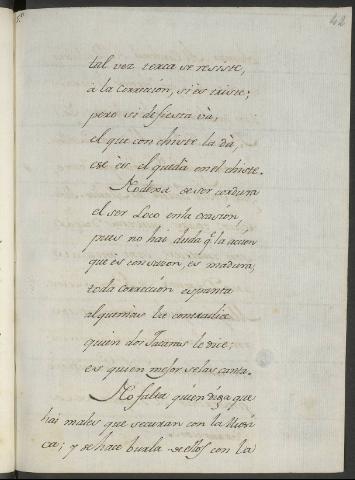 42
tal vez terca se resiste,
à la Correccion, si ès triste;
pero si de fiesta và,
el que con chiste la dà,
ese ès el que dà en el chiste.
No dexa de ser cordura
el ser Loco en la ocasion,
pues no hai duda q.e la accion
que ès con sazon, ès madura;
toda Correccion espanta
al que mas le contradice
quien dos Jacaras le dice;
es quien mejor se las canta.
No falta quien diga que
hai males que se curan con la Musi
ca; y se hace burla de ellos con la